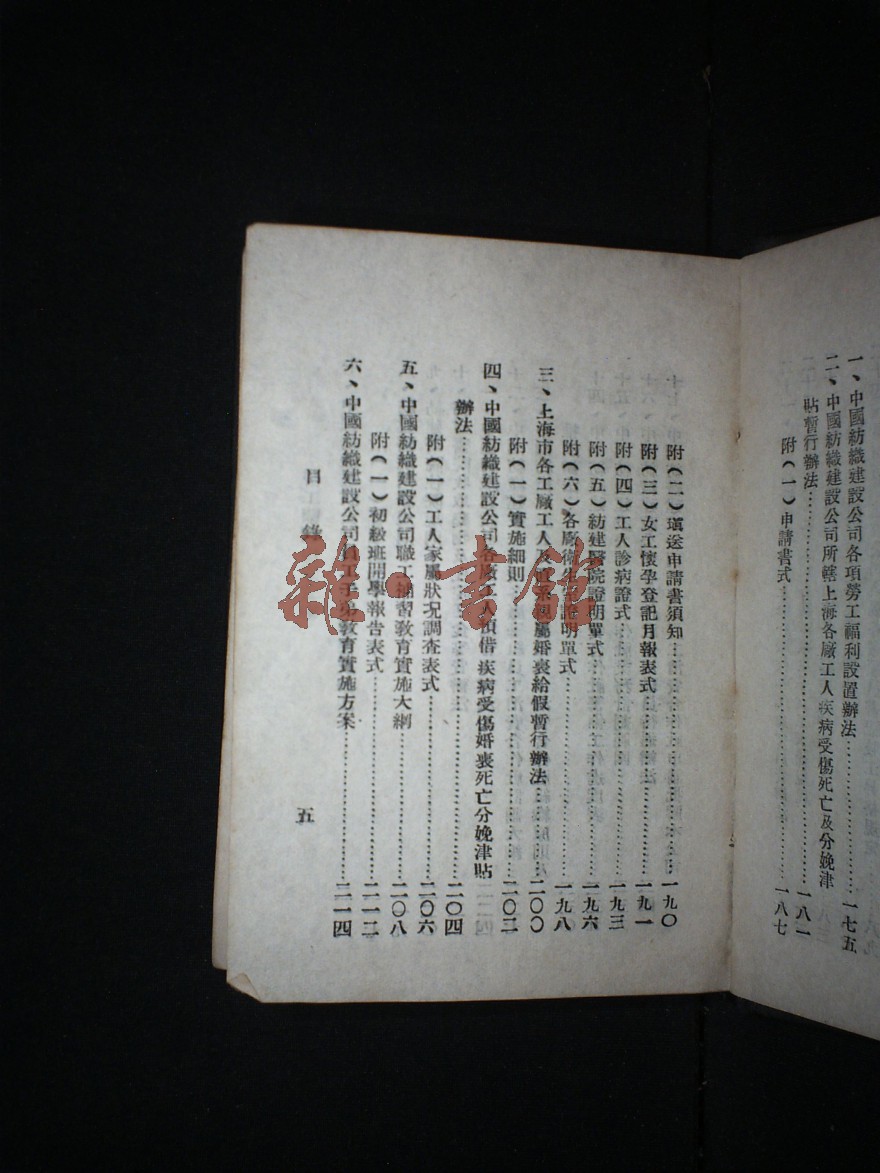 一、中國紡織建設公司各項勞工福利設置辦法…………一七五
二、中國紡織建設公司所轄上海各廠工人疾病受傷死亡及分娩津
貼暫行辦法…………一八一
附(一)申請書式…………一八七
附(二)塡送申請書須知…………一九〇
附(三)女工懷孕登記月報表式…………一九一
附(四)工人診病證式…………一九三
附(五)紡建醫院證明單式…………一九六
附(六)各廠衛生室證明單式…………一九八
三、上海市各工廠工人及直系親屬婚喪給假暫行辦法…………二〇〇
附(一)實施細則…………二〇二
四、中國紡織建設公司各廠工人預借疾病受傷婚喪死亡分娩津貼
辦法…………二〇四
附(一)工人家屬狀况調査表式…………二〇六
五、中國紡織建設公司職工補習敎育實施大綱…………二〇八
附(一)初級班開學報告表式…………二一二
六、中國紡織建設公司員工子弟敎育實施方案…………二一四
目錄
五
雜·書館